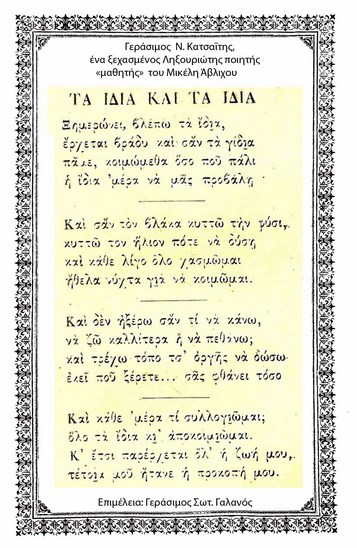 Γεράσιμος Ν. Κατσαΐτης,
ένα ξεχασμένος Ληξουριώτης ποιητής
«μαθητής» του Μικέλη Άβλιχου
ΤΑ ΙΔΙΑ ΚΑΙ ΤΑ ΙΔΙΑ
Ξημερώνει, βλέπω τὰ ἴδια,
ἔρχεται βράδυ καὶ σὰν τὰ γίδια
πᾶμε, κοιμώμεθα ὅσο ποῦ πάλι
ἡ ἴδια ᾿μέρα νὰ μᾶς προβάλῃ
Καὶ σὰν τὸν βλάκα κυττῶ τὴν φύσι,
κυττῶ τον ἥλιον πότε νὰ δύσῃ
καὶ κάθε λίγο ὅλο χασμῶμαι
ἤθελα νύχτα γιὰ νὰ κοιμῶμαι.
Καὶ δὲν ἠξέρω σὰν τί νὰ κάνω,
νὰ ζῶ καλλίτερα ἢ νὰ πεθάνω;
καὶ τρέχω τόπο τσ᾿ ὀργῆς νὰ δώσω
ἐκεῖ ποῦ ξέρετε... σᾶς φθάνει τόσο
Καὶ κάθε ᾿μέρα τί συλλογιῶμαι;
ὅλο τὰ ἴδια κι᾿ ἀποκοιμιῶμαι.
Κ᾿ ἔτσι παρέρχεται ὅλ᾿ ἡ ζωή μου,
τέτοια μοῦ ἤτανε ἡ προκοπή μου.
Επιμέλεια: Γεράσιμος Σωτ. Γαλανός